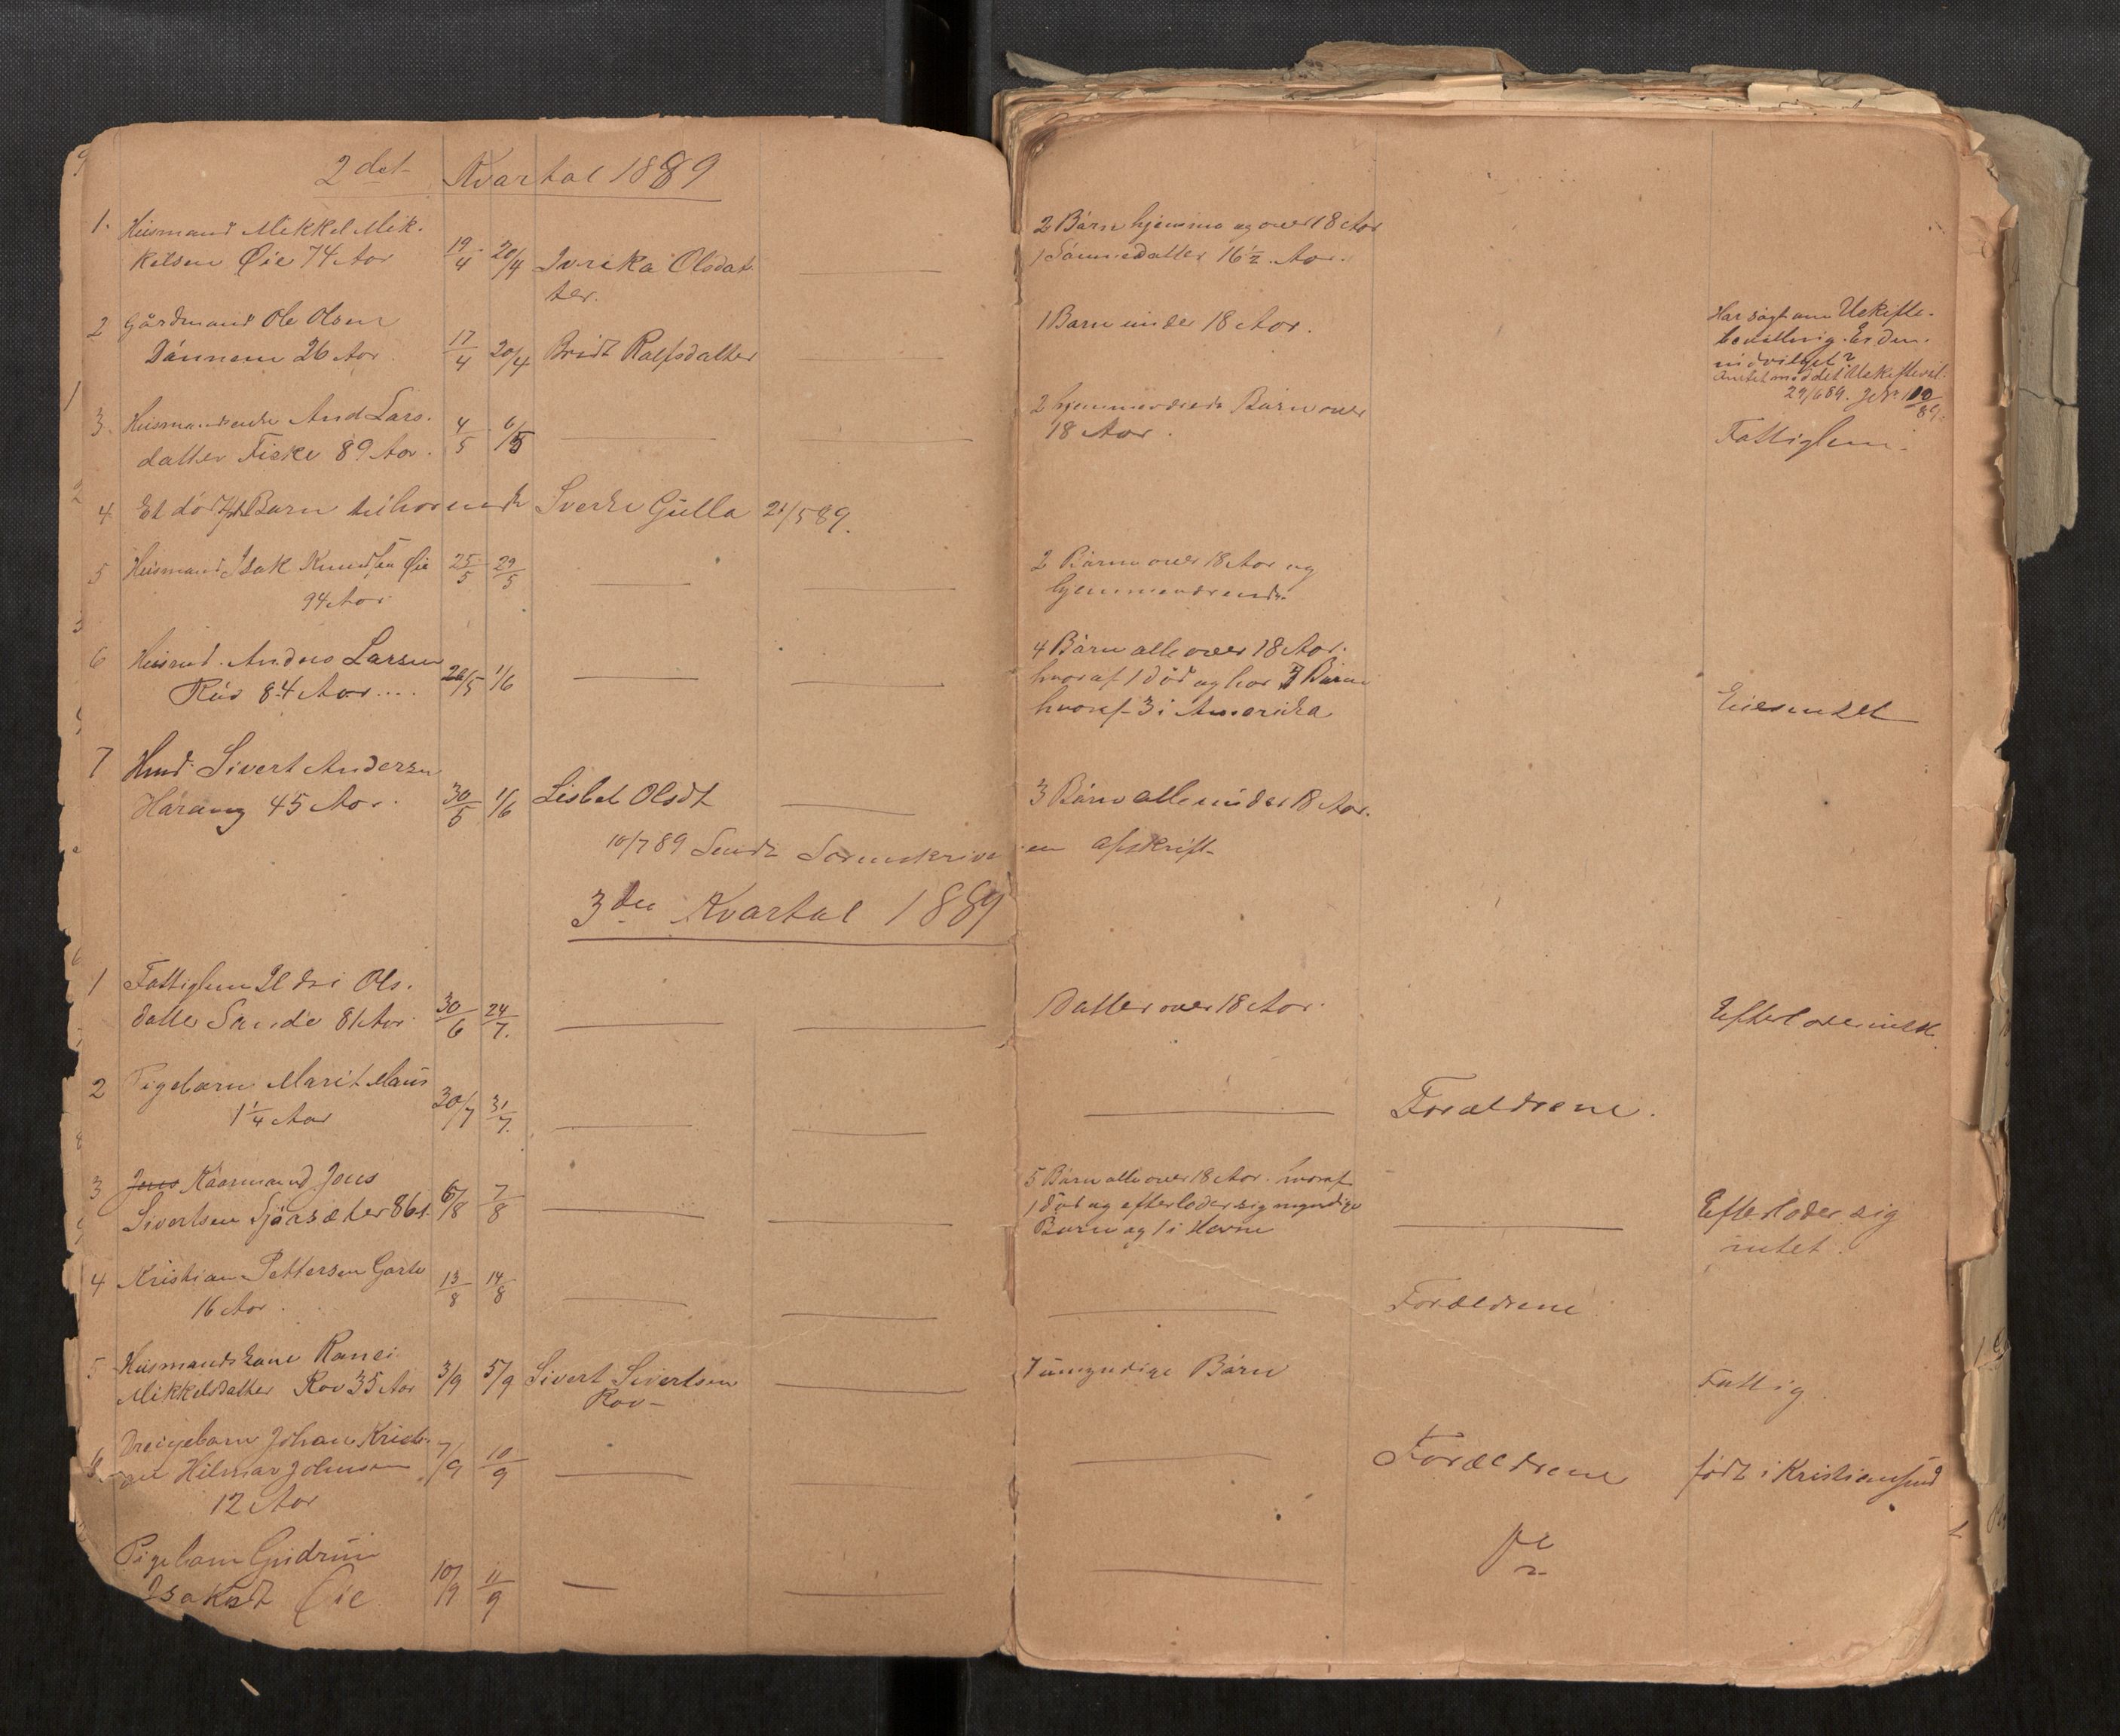 2det Kvartal 1889
1. Husmand Mikkel Mik-
kelsen Øie 74 Aar 19/4 20/4 Olsdat
ter.
2 Børn hjemme og over 18 Aar
1 Sønnedatter 16 1/2 Aar.
2 Gårdmand Ole Olsen
Dønnem 26 Aar. 17/4 20/4 Bridt Rolfsdatter
1 Barn under 18 Aar.
Har søgt om Uskifte-
bevilling. Er den
indvilget?
29/6 89.
3. And Lars-
datter Fiske 89 Aar. 4/5 6/5
2 hjemmeværende Børn over
18 Aar.
Fattiglem.
4 Et dødf Barn tilhørende Sverke Gulla 21/5 89.
5 Husmand Isak Knudsen Øie 25/5 29/5
94 Aar
2 Børn over 18 Aar og
hjemmeværende.
6 Husmd. Anders Larsen
Røv 84 Aar.... 28/5 1/6
4 Børn alle over 18 Aar.
hvoraf 1 død og har 7 Børn
hvoraf 3 i Amerika
Eies intet
7 Hmd. Sivert Andersen
Harang 45 Aar. 30/5 1/6 Lisbet Olsdt
3 Børn alle under 18 Aar.
10/7 89 Sendt Sorenskriveren afskrift
3die Kvartal 1889
1 Fattiglem Ildri Ols-
datter Sande 81 Aar 30/6 24/7.
Datter over 18 Aar.
Efterlod intet
2 Pigebarn Marit Maus
1 1/4 Aar 30/7 31/7.
Forældrene.
3 Jons Kaarmand Jons
Sivertsen Sjørsæter 86 A. 6/8 7/8
5 Børn alle over 18 Aar. hvoraf
1 død og efterlader sig myndige
Børn og 1 i Hevne
Efterlader sig
intet.
4 Kristian Pettersen Garte 13/8 14/8
16 Aar.
Forældrene
5 Husmandskone Ranei
Mikkelsdatter Røv 35 Aar 3/9 5/9 Sivert Sivertsen
Røv
7 umyndige Børn
Fattig.
6 Drengebarn Johan Kristi-
an Hilmar Johnsen 7/9 10/9
12 Aar
Forældrene
født i Kristiansund
Pigebarn Gudrun
Isaksdt Øie 10/9 11/9